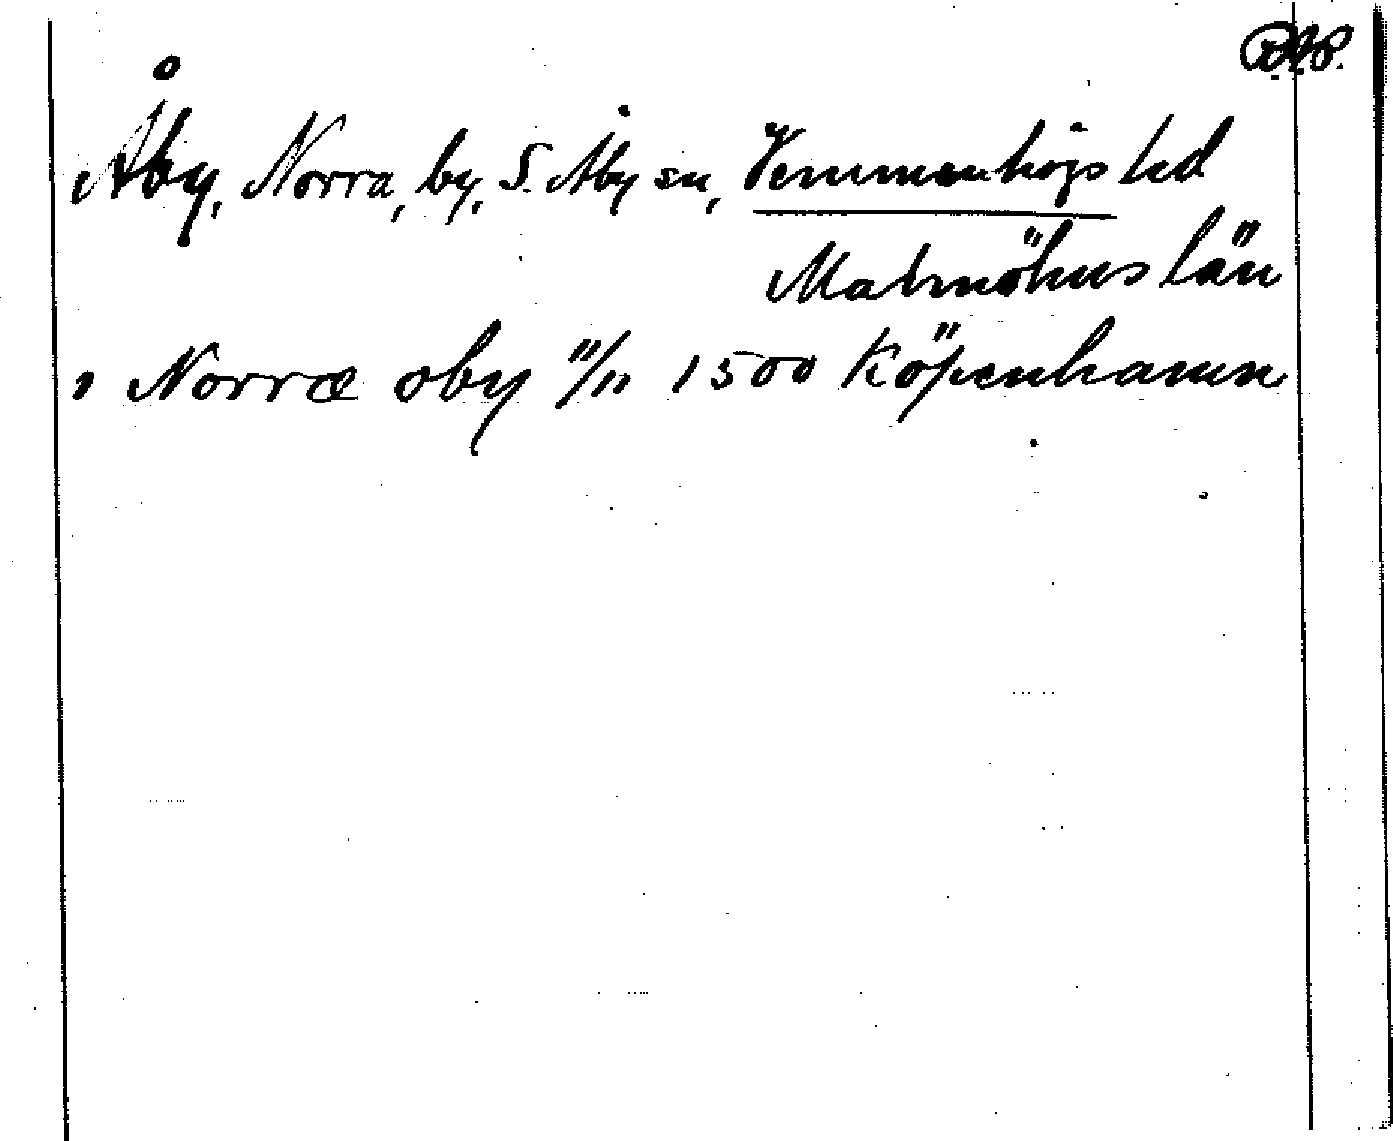 Åby, Norra, by, S. Åby sn, Vemmenhögs hd
Malmöhus län
i Norræ oby 11/11 1500 Köpenhamn